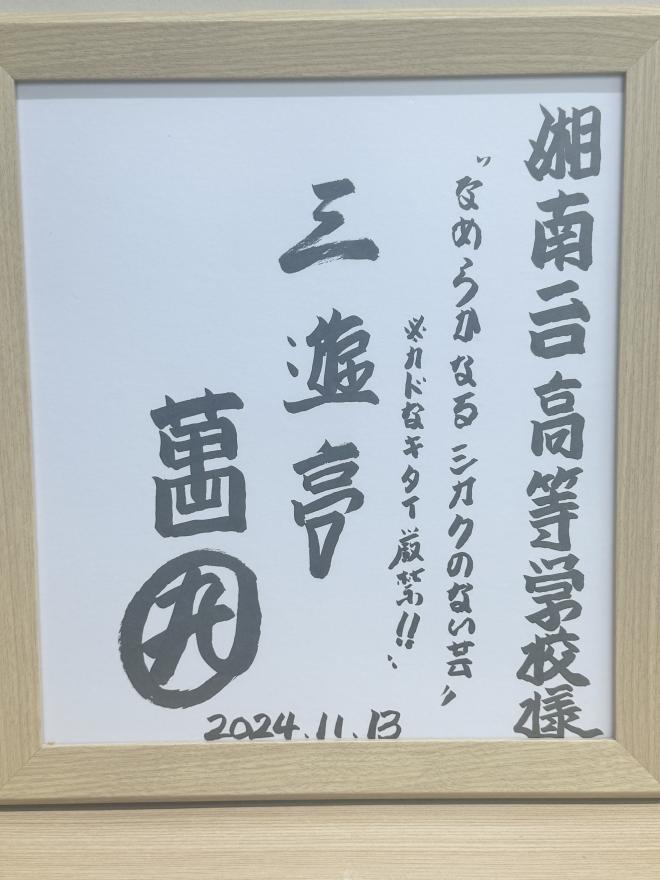 湘南台高等学校様
〝なめらかなるシカクのない芸〟
※カドなキタイ厳禁!!
三遊亭
萬丸
2024.11.13